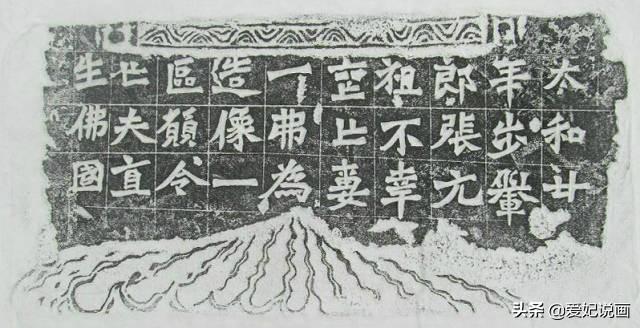 太和廿
年步轝
郎張元
祖不幸
喪亡妻
一弗為
造像一
區願令
亡夫直
生佛國
头条 @爱妃说画